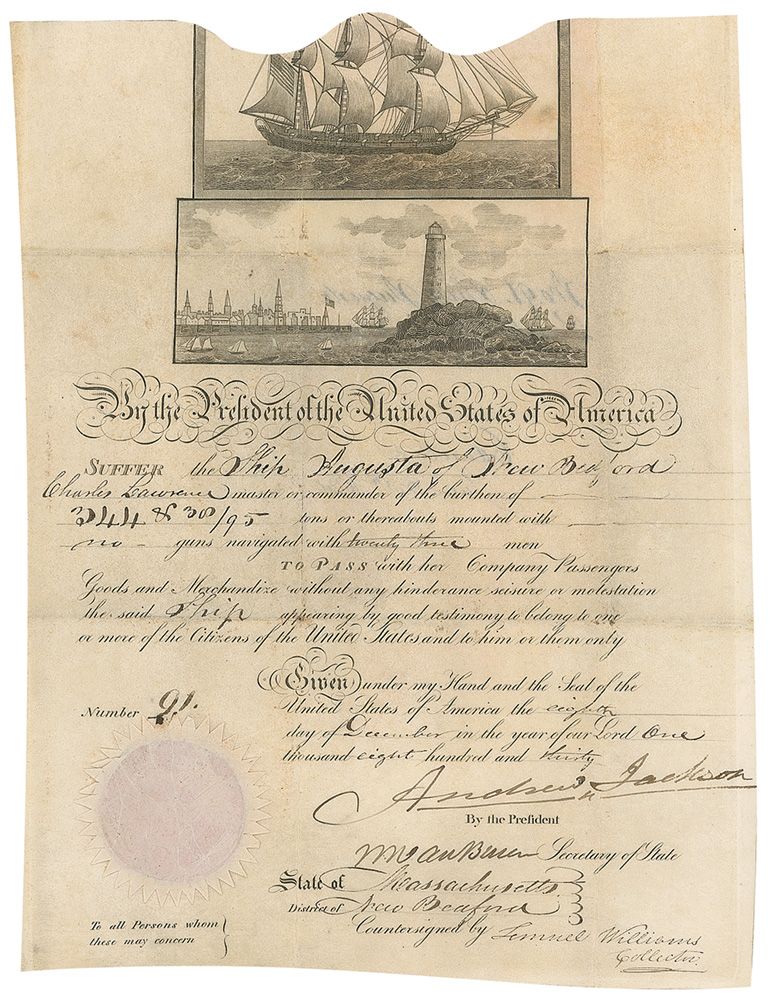 By the President of the United States of America
SUFFER the Ship Augusta of New Bedford
Charles Lawrence master or commander of the burthen of
344 & 38/95 tons or thereabouts mounted with
no guns navigated with twenty three men
TO PASS with her Company Passengers
Goods and Merchandize without any hinderance seisure or molestation
the said Ship appearing by good testimony to belong to one
or more of the Citizens of the United States and to him or them only
Given under my Hand and the Seal of the
United States of America the eighth
Number 91.
day of December in the year of our Lord One
thousand eight hundred and thirty
Andrew Jackson
By the President
M Van Buren Secretary of State
State of Massachusetts
District of New Bedford
To all Persons whom
these may concern
Countersigned by Lemuel Williams
Collector